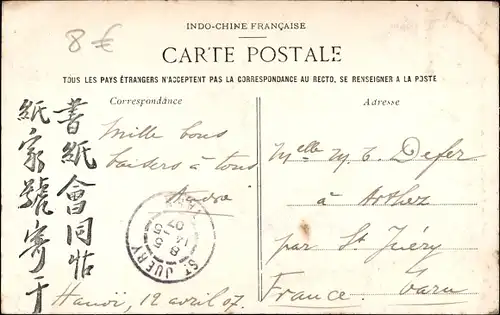 8 €
INDO-CHINE FRANÇAISE
CARTE POSTALE
TOUS LES PAYS ÉTRANGERS N'ACCEPTENT PAS LA CORRESPONDANCE AU RECTO, SE RENSEIGNER A LA POSTE
Correspondance
Mille bons
baisers à tous
André
Hanoï, 12 avril 07.
書紙會同帖
紙家號寄于
ST JUERY
14
5
07
Adresse
Melle M. T. Defer
à Arthez
par St Juéry
France. Tarn